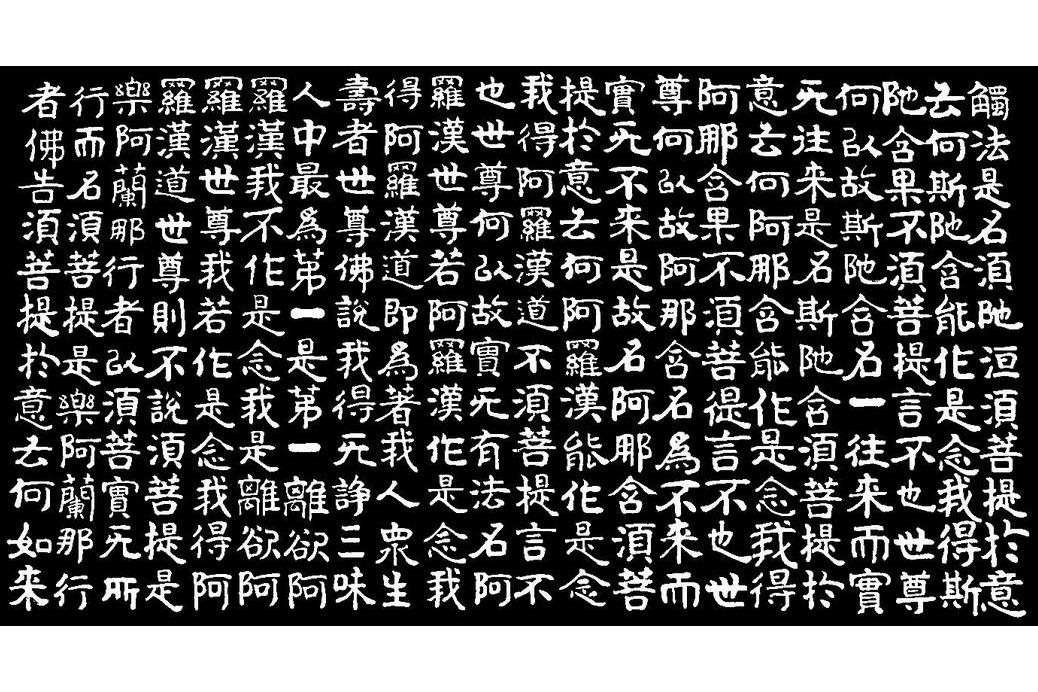 觸法是名須陁洹須菩提於意
云何斯陁含能作是念我得斯
陁含果不須菩提言不也世尊
何以故斯陁含名一往来而實
无往来是名斯陁含須菩提於
意云何阿那含能作是念我得
阿那含果不須菩提言不也世
尊何以故阿那含名為不来而
實无不来是故名阿那含須菩
提於意云何阿羅漢能作是念
我得阿羅漢道不須菩提言不
也世尊何以故實无有法名阿
羅漢世尊若阿羅漢作是念我
得阿羅漢道即為著我人衆生
壽者世尊佛說我得无諍三味
人中最為苐一是苐一離欲阿
羅漢我不作是念我是離欲阿
羅漢世尊我若作是念我得阿
羅漢道世尊則不說須菩提是
樂阿蘭那行者以須菩實无所
行而名須菩提是樂阿蘭那行
者佛告須菩提於意云何如来